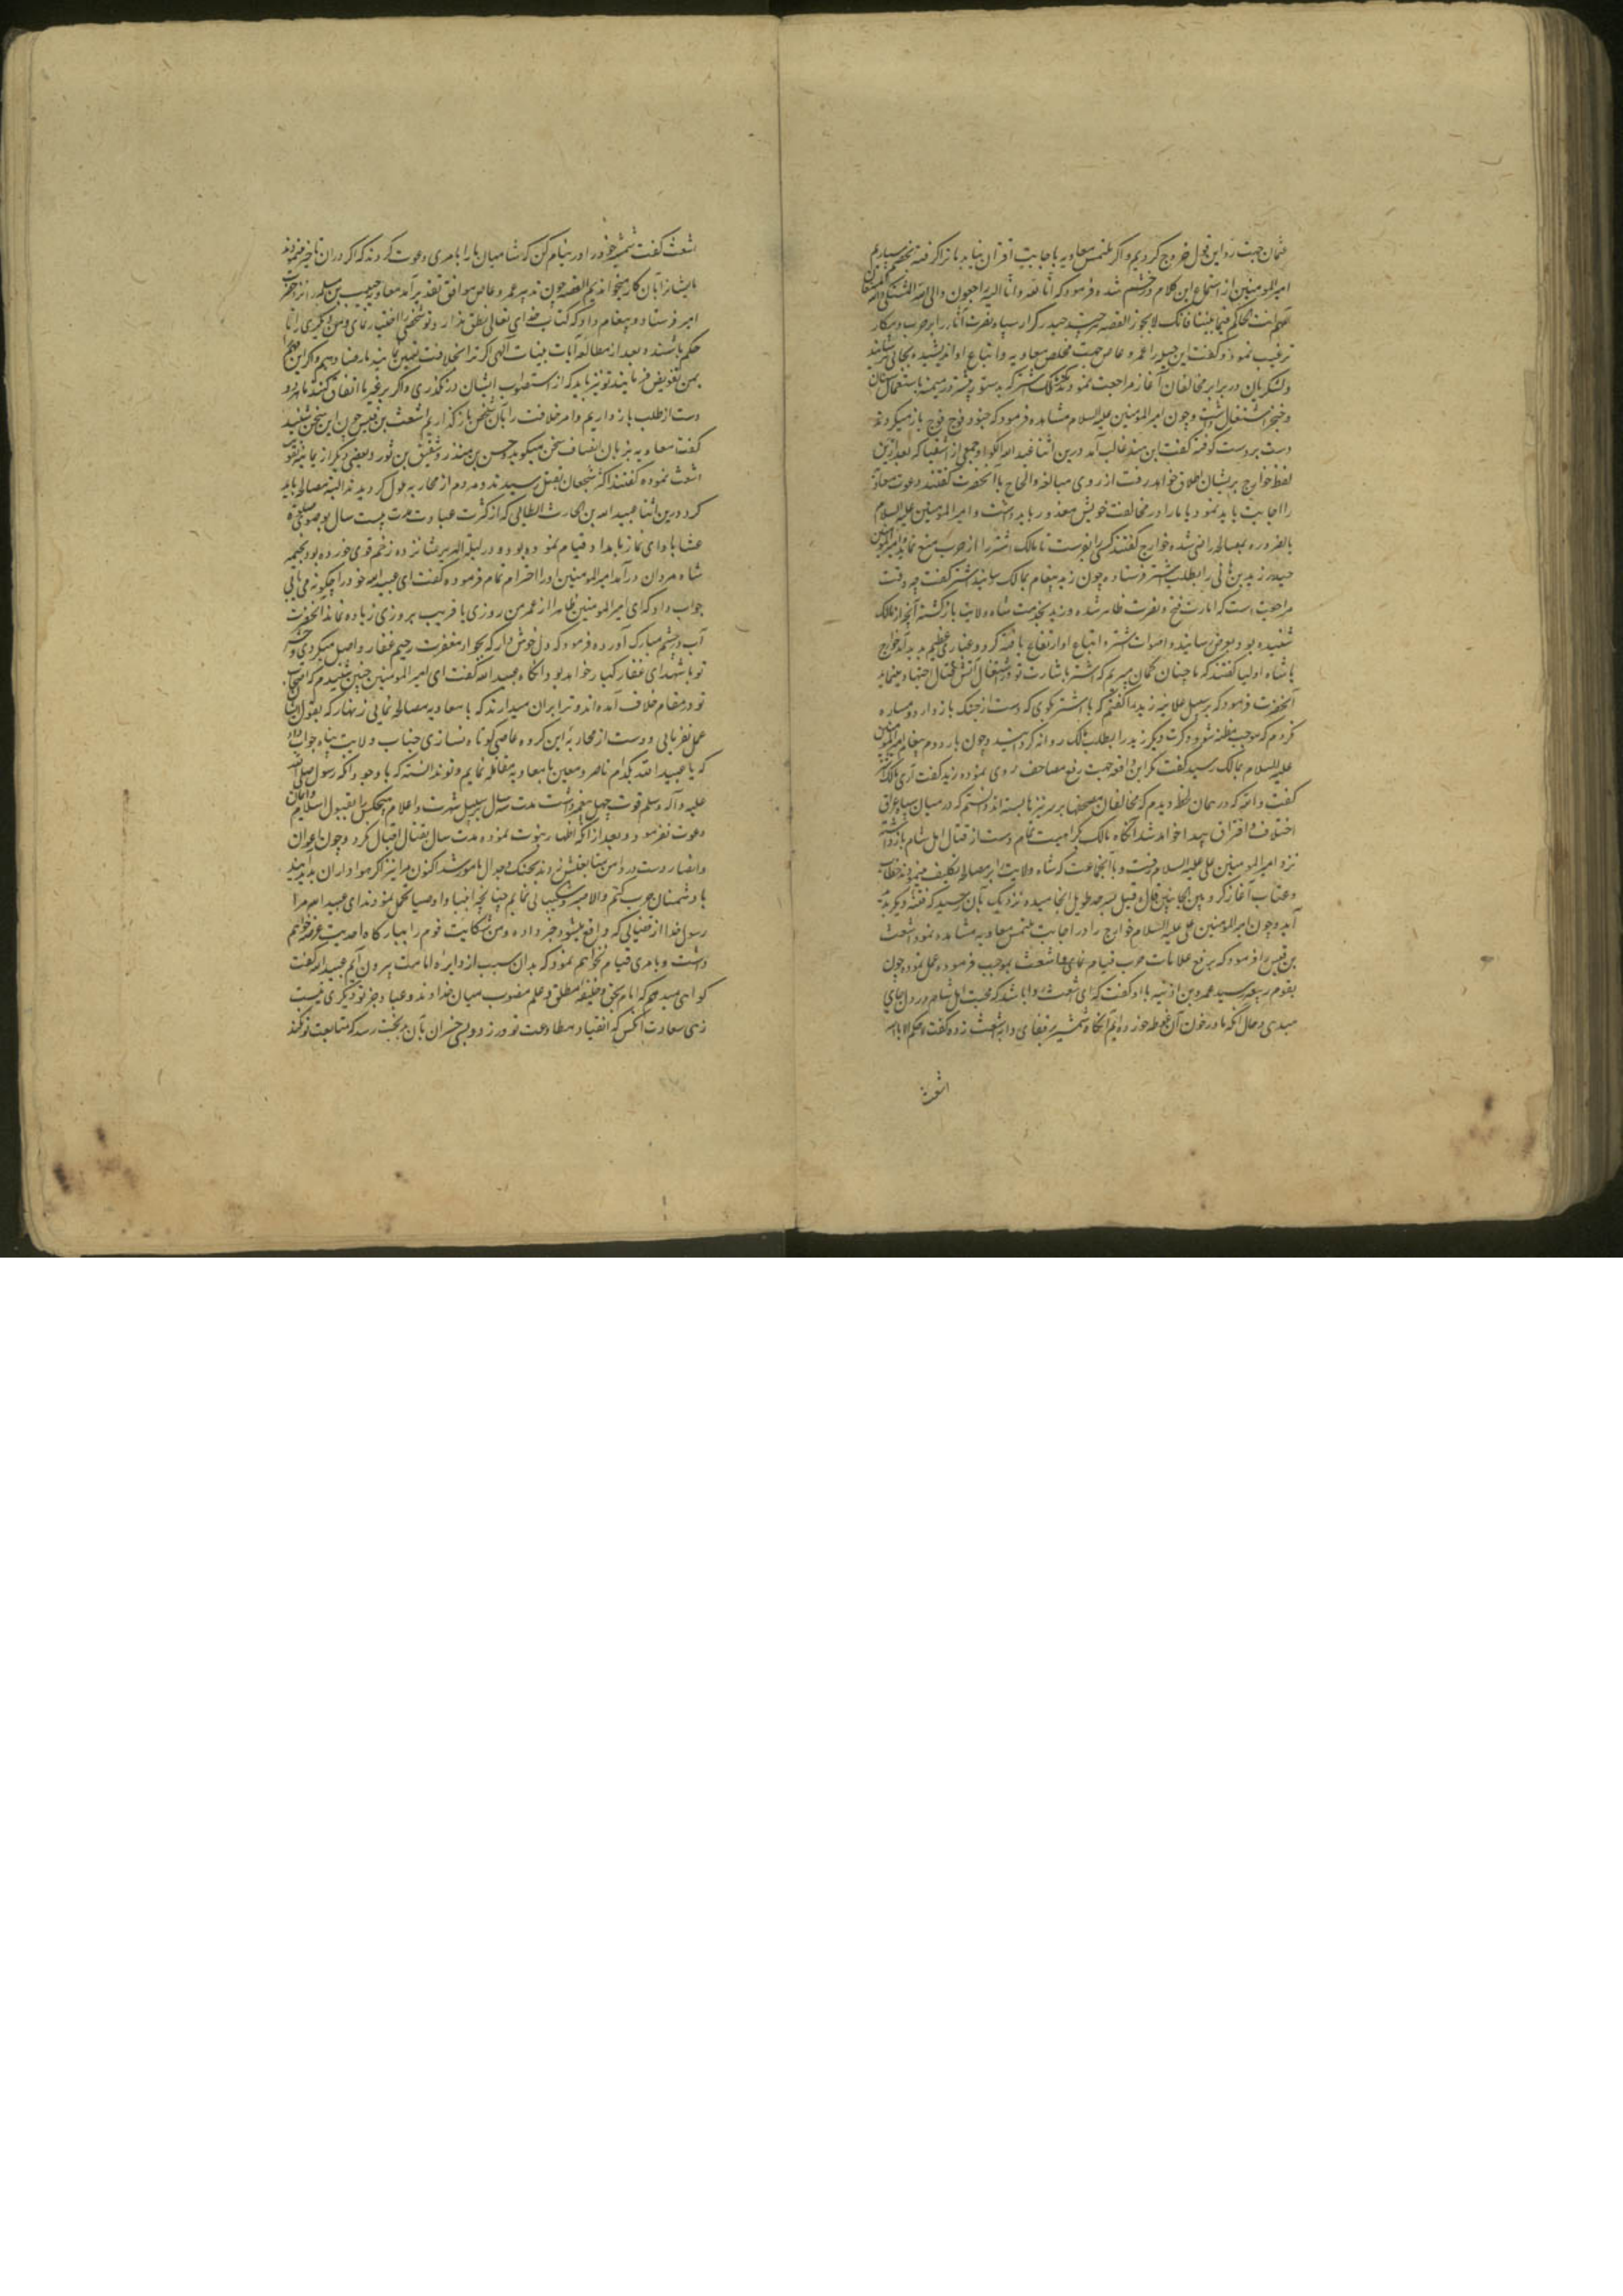 عثمان جهت رد این قول خروج کردیم و اگر ملتمس معاویه باجابت اقتران نیابد باز ترا گرفته بخصم سپاریم
امیرالمومنین از استماع این کلام در خشم شده فرمود که انا لله و انا الیه راجعون و الی الله المشتکی
ترغیب نمود و گفت این حیله را عمرو عاص جهت مخلص معاویه و اتباع او اندیشیده
و لشکریان در برابر مخالفان آغاز مراجعت نمودند مالک اشتر که بدستور در میمنه باستعمال سنان
و خنجر اشتغال داشت و چون امیرالمومنین علیه السلام مشاهده فرمود که جنود فوج فوج باز میگردند
دست بر دست کوفته گفت ابن هند غالب آمد درین اثنا عبدالله الکوا و جمعی از اشقیا که بعد ازین
لفظ خوارج بریشان اطلاق خواهد رفت از روی مبالغه و الحاح با آنحضرت گفتند دعوت معاویه
را اجابت باید نمود یا ما را در مخالفت خویش معذور باید داشت و امیرالمومنین علیه السلام
بالضروره بمصالحه راضی شده خوارج گفتند کسی را بفرست تا مالک اشتر را از حرب منع نماید
حیدر زید بن هانی را بطلب اشتر فرستاده چون زید پیغام بمالک رسانید اشتر گفت چه وقت
مراجعت است که امارت فتح و نصرت ظاهر شده و زید بخدمت شاه ولایت بازگشته آنچه از مالک
شنیده بود بعرض رسانید و اصوات اشتر و اتباع او ارتفاع یافته گرد و غباری عظیم پدید آمد خوارج
با شاه اولیا گفتند که ما چنان گمان میبریم که اشتر باشارت تو در اشتعال آتش قتال اجتهاد مینماید
آنحضرت فرمود که بر سبیل علانیه زید را گفتم که با اشتر بگوی که دست از جنگ باز دار و مساره
نکردم که موجب مظنه شود و کرت دیگر زید را بطلب مالک روانه گردانید و چون بار دوم پیغام امیرالمومنین
علیه السلام بمالک رسید گفت مگر این واقعه جهت رفع مصاحف روی نموده زید گفت آری مالک
گفت والله که در همان لحظه دیدم که مخالفان مصحفها بر سر نیزها بسته اند دانستم که در میان سپاه عراق
اختلاف و افتراق پیدا خواهد شد آنگاه مالک بکراهیت تمام دست از قتال اهل شام بازداشته
نزد امیرالمومنین علی علیه السلام رفت و با آنجماعت که شاه ولایت را بر مصالحه تکلیف مینمودند خطاب
و عتاب آغاز کرد و بین الجانبین قال و قیل بسرحد طویل انجامیده و نزدیک بآن رسید که فتنه دیگر پدید
آید و چون امیرالمومنین علی علیه السلام خوارج را در اجابت ملتمس معاویه مشاهده نمود اشعث
بن قیس را فرمود که برفع علامات حرب قیام نمای و اشعث بموجب فرموده عمل نموده چون
بقوم ربیعه رسید عمرو بن اذنیه با او گفت که ای اشعث روا باشد که محبت اهل شام در دل جای
میدهی و حال آنکه ما در خون آن غوطه خورده ایم آنگاه شمشیر بر قفای دابه اشعث زده گفت لا حکم الا لله
اشعث
اشعث گفت شمشیر خود را در نیام کن که شامیان ما را بامری دعوت کردند که اگر در آن تاخیر مینمودند
ما ایشانرا بآن کار میخواندیم القصه چون تدبیر عمرو عاص موافق تقدیر آمد معاویه حبیب بن مسلمه را نزد حضرت
امیر فرستاد و پیغام داد که کتاب خدای تعالی
حکم باشند و بعد از مطالعه آیات بینات آلهی اگر ترا بخلافت تعیین نمایند ما رضا دهیم و اگر این مهم
بمن تفویض فرمایند تو نیز باید که از استصواب ایشان در نگذری و اگر بر غیر ما اتفاق کنند ما هر دو
دست از طلب باز داریم و امر خلافت را بآن شخص باز گذاریم اشعث بن قیس چون این سخن شنید
گفت معاویه بزبان انصاف سخن میگوید و حسن بن منذر و شقیق بن ثور و بعضی دیگر از یمانیه تقویت
اشعث نموده گفتند اکثر شجعان بقتل رسیدند و مردم از محاربه ملول گردیدند البته مصالحه باید
کرد درین اثنا عبیدالله بن الحارث الطایی که از کثرت عبادت مدت بیست سال بوضوی صلوة
عشا بادای نماز بامداد قیام نموده بود و در لیلة الهریر شانزده زخم قوی خورده بود بخیمه
شاه مردان درآمد امیرالمومنین او را احترام تمام فرموده گفت ای عبیدالله خود را چگونه می یابی
جواب داد که ای امیرالمومنین ظاهرا از عمر من روزی یا قریب بروزی زیاده نمانده آنحضرت
آب در چشم مبارک آورده فرمود که دل خوش دار که بجوار مغفرت رحیم غفار واصل میگردی و حشر
تو با شهدای غفار کبار خواهد بود آنگاه عبیدالله گفت ای امیرالمومنین چنین شنیدم که اصحاب
تو در مقام خلاف آمده اند و ترا بر آن میدارند که با معاویه مصالحه نمایی زنهار که بقول ایشان
عمل نفرمایی و دست از محاربه این گروه عاصی کوتاه نسازی جناب ولایت پناه جواب داد
که یا عبیدالله بکدام ناصر و معین با معاویه مقاتله نمایم و تو ندانسته که با وجود آنکه رسول صلی الله
علیه و آله وسلم قوت چهل پیغمبر داشت مدت سه سال بر سبیل شهرت و اعلام هیچکس را بقبول اسلام و ایمان
دعوت نفرمود و بعد از آنکه اظهار نبوت نموده مدت سال بقتال اقبال نکرد و چون اعوان
و انصار دست در دامن متابعتش زدند بجنگ و جدال مامور شد اکنون مرا نیز اگر هواداران پدید آیند
با دشمنان حرب کنم والا صبر و شکیبائی نمایم چنانچه انبیا و اوصیا تحمل نمودند ای عبیدالله مرا
رسول خدا از قضایائی که واقع میشود خبر داده و من شکایت قوم را ببارگاه احدیت عرضه خواهم
داشت و بامری قیام نخواهم نمود که بدان سبب از دایره امامت بیرون آیم عبیدالله گفت
گواهی میدهم که امام بحق و خلیفه مطلق و علم منصوب میان خدا و عباد جز تو دیگری نیست
زهی سعادت آنکس که انقیاد و مطاوعت تو ورزد و بسی خسران بآن بدبخت رسد که متابعت تو نکند